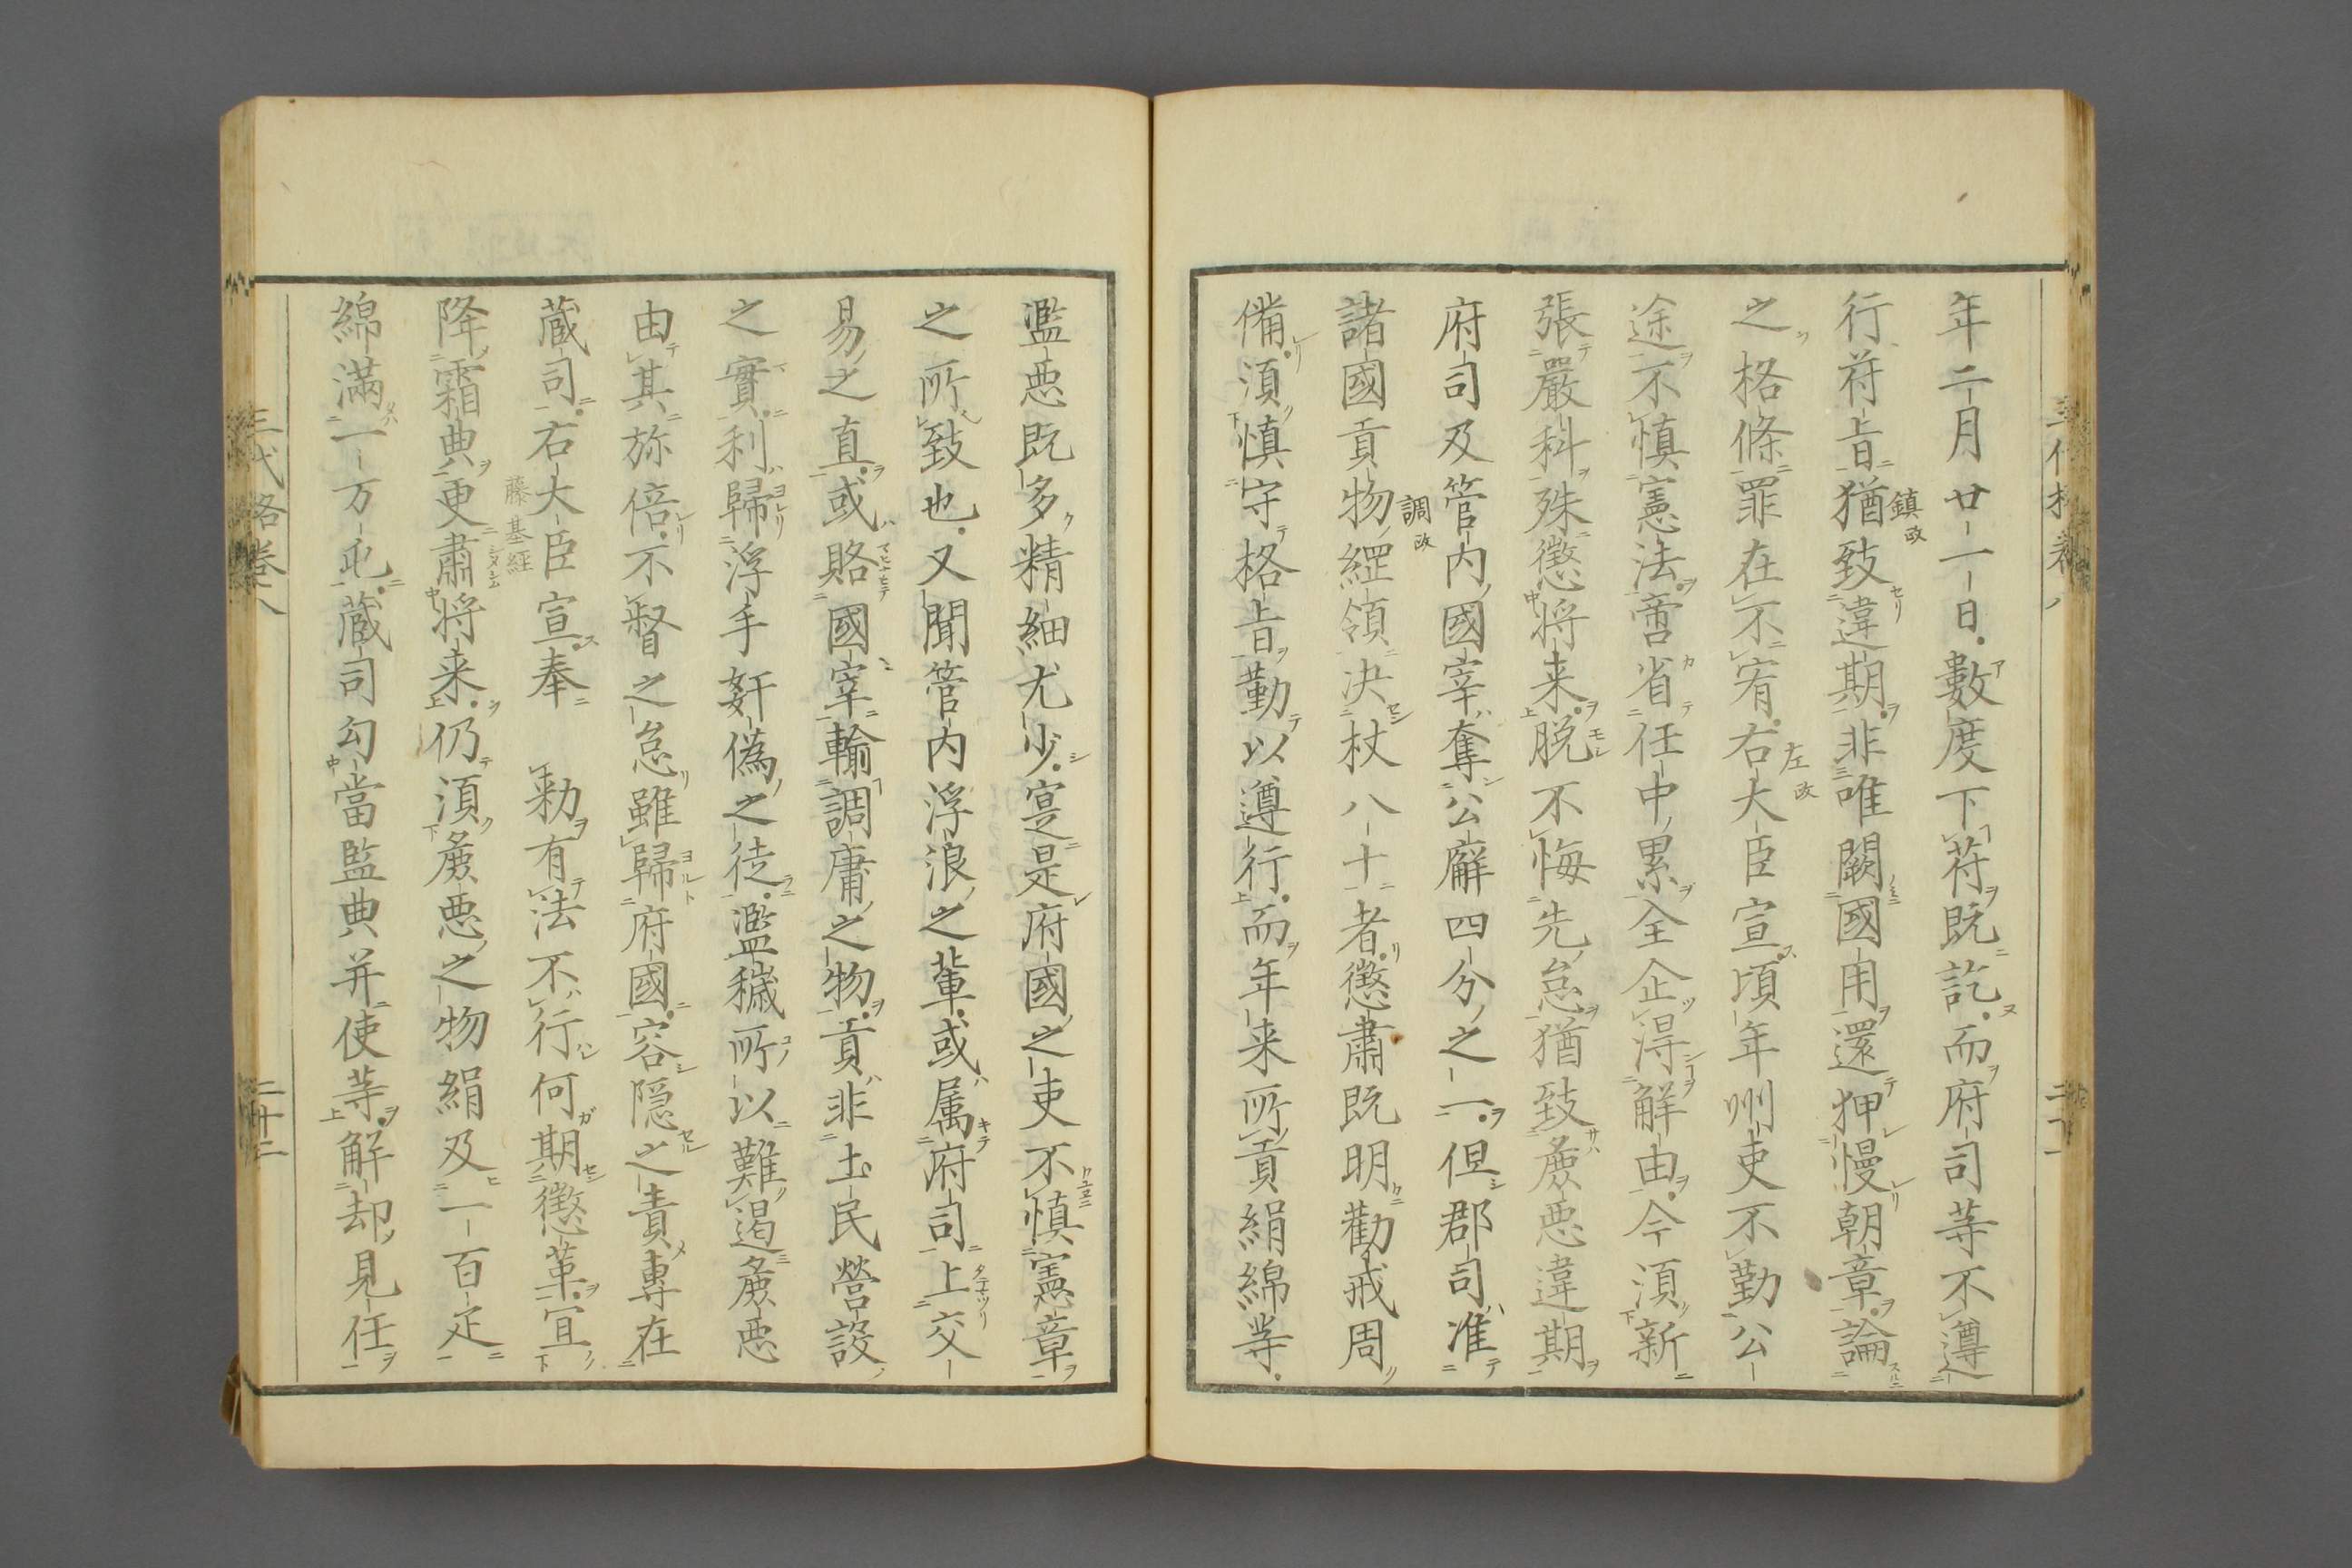 年二月廿一日數度下符既訖而府司等不遵
行符旨猶致違期非唯闕國用還狎慢朝章論
鎮歟
之格條罪在不宥右大臣宣頃年州吏不勤公
左歟
途不慎憲法啻省任中累全企得解由今須新
張嚴科殊懲將来脱不悔先怠猶致麁悪違期
府司及管内國宰奪公廨四分之一但郡司准
諸國貢物綱領决杖八十者懲肅既明勸戒周
調歟
備須慎守格旨勤以遵行而年来所貢絹綿等
濫悪既多精細尤少寔是府國之吏不慎憲章
之所致也又聞管内浮浪之輩或属府司上交
易之直或賂國宰輸調庸之物貢非土民營設
之實利歸浮手姧偽之徒濫穢所以難遏麁悪
由其弥倍不督之怠雖歸府國容隠之責專在
蔵司右大臣宣奉 勅有法不行何期懲革宜
藤基経
降霜典更肅将来仍須麁悪之物絹及一百疋
綿満一万屯蔵司勾當監典并使等解却見任
三代格卷八
二十二